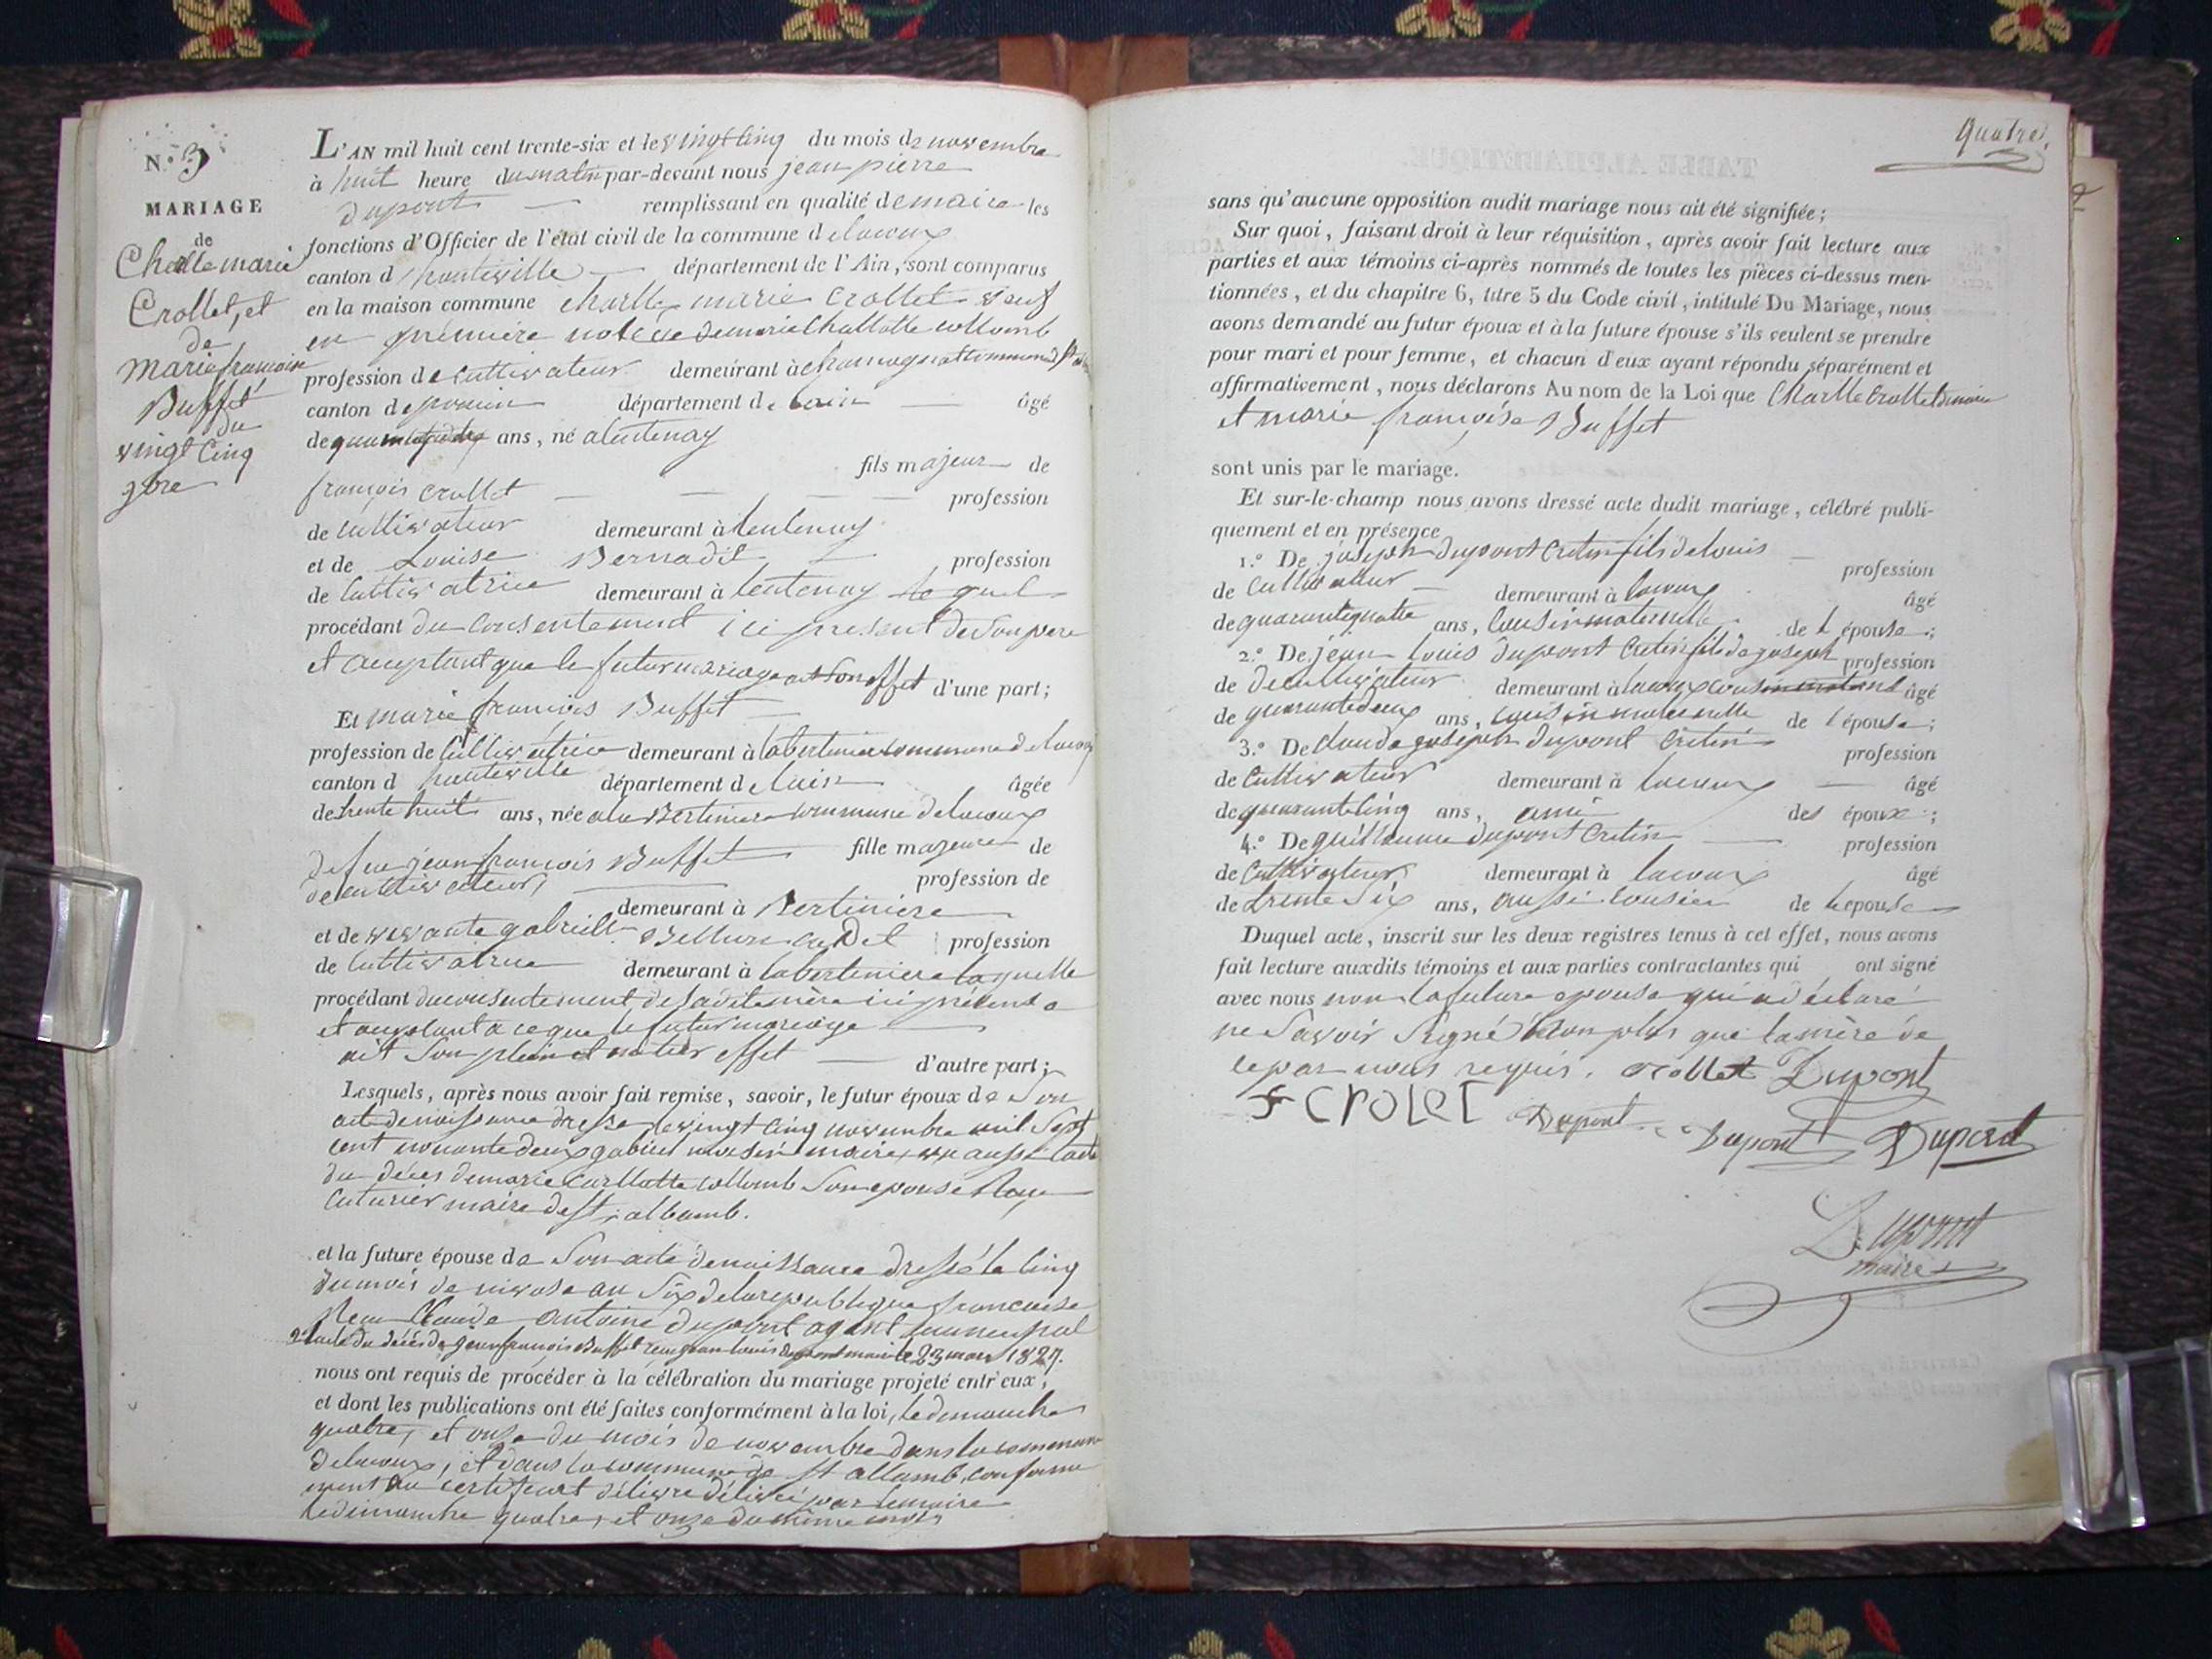 N.º 3
MARIAGE
de
Charlle marie
Crollet, et
de
marie francoise
Buffet
du
vingt Cinq
9bre
L'AN mil huit cent trente-six et le vingt Cinq du mois de novembre
à huit heure du matin par-devant nous jean pierre
dupont remplissant en qualité de maire les
fonctions d'Officier de l'état civil de la commune de lacoux
canton d'hauteville département de l'Ain, sont comparus
en la maison commune Charlle marie Crollet veuf
en premiere de marie Challotte collomb
profession de cultivateur demeurant à
canton de poncin département de lain âgé
de ans, né a lentenay
fils majeur de
françois crollet profession
de cultivateur demeurant à lentenay
et de Louise Bernadit profession
de Cultivatrice demeurant à lentenay le quel
procédant du consentement ici present de son pere
et acceptant que le futur mariage ait son effet d'une part;
Et marie francois Buffet
profession de Cultivatrice demeurant à labertiniere commune de lacoux
canton d hauteville département de lain âgée
de trente huit ans, née a la Bertiniere commune de lacoux
fille majeure de
de feu jean francois Buffet
de cultivateur, profession de
demeurant à Bertiniere
et de vivante gabrielle profession
de Cultivatrice demeurant à labertiniere laquelle
procédant du consentement de sadite mère ici présente
et acceptant a ce que le futur mariage
ait son plein et entier effet d'autre part;
Lesquels, après nous avoir fait remise, savoir, le futur époux de Son
acte de naissance dressé le vingt cinq novembre mil sept
cent nonante deux gabriel maire, aussi lacte
du décès de marie Carllotte collomb Son epouse Reçu
Cuturier maire de st; albamb.
et la future épouse de Son acte de naissance dressé le cinq
du mois de nivose an Six de la republique francaise
Reçu Claude Antoine dupont agent municipal
2º lacte du décés de jean françois Buffet reçu jean louis dupont maire le 23 mars 1827.
nous ont requis de procéder à la célébration du mariage projeté entr'eux,
et dont les publications ont été faites conformément à la loi, le dimanche
quatre, et onze du mois de novembre dans la commune
de lacoux, et dans la commune de st allamb, conforme
ment au certificat délivre délivré par le maire
le dimanche quatre, et onze du même mois
quatre.
sans qu'aucune opposition audit mariage nous ait été signifiée;
Sur quoi, faisant droit à leur réquisition, après avoir fait lecture aux
parties et aux témoins ci-après nommés de toutes les pièces ci-dessus men-
tionnées, et du chapitre 6, titre 5 du Code civil, intitulé Du Mariage, nous
avons demandé au futur époux et à la future épouse s'ils veulent se prendre
pour mari et pour femme, et chacun d'eux ayant répondu séparément et
affirmativement, nous déclarons Au nom de la Loi que Charlle Crollet
et marie françoise Buffet
sont unis par le mariage.
Et sur-le-champ nous avons dressé acte dudit mariage, célébré publi-
quement et en présence
1.º De joseph dupont Cretin fils de louis profession
de Cultivateur demeurant à lacoux âgé
de quarante quatre ans, Cousin maternelle de l épouse;
2.º De jean louis dupont Cretin fils de joseph profession
de de cultivateur demeurant à lacoux âgé
de quarante deux ans, cousin maternelle de l'épouse;
3.º De Claude joseph dupont Cretin profession
de Cultivateur demeurant à lacoux âgé
de quarante Cinq ans, ami des époux;
4.º De guillaume dupont Cretin profession
de Cultivateur demeurant à lacoux âgé
de trente Six ans, aussi Cousin de lepouse
Duquel acte, inscrit sur les deux registres tenus à cet effet, nous avons
fait lecture auxdits témoins et aux parties contractantes qui ont signé
avec nous non la future epouse qui a déclaré
ne Savoir Signé non plus que la mère de
ce par nous requis. Crollet Dupont
F CroLeT Dupont Dupont Dupont
Dupont
maire